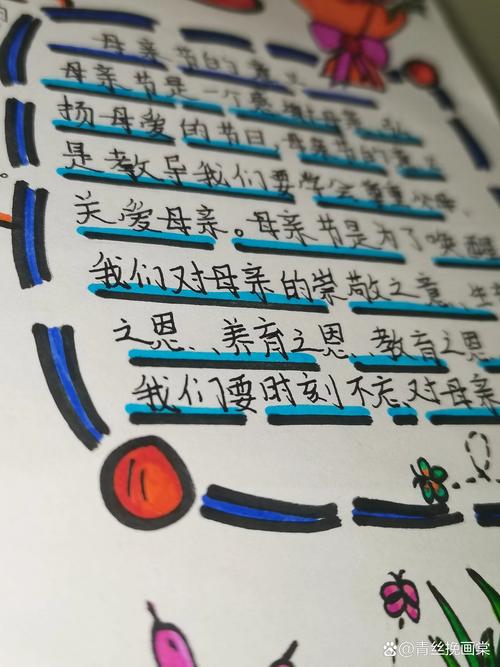 母亲节的意义
母亲节是一个感谢母亲、弘
扬母爱的节日,母亲节的意义
是教导我们要学会尊重父母、
关爱母亲。母亲节是为了唤醒
我们对母亲的崇敬之意、生
之恩、养育之恩、教育之恩
我们要时刻不忘、对母亲
青丝挽画棠